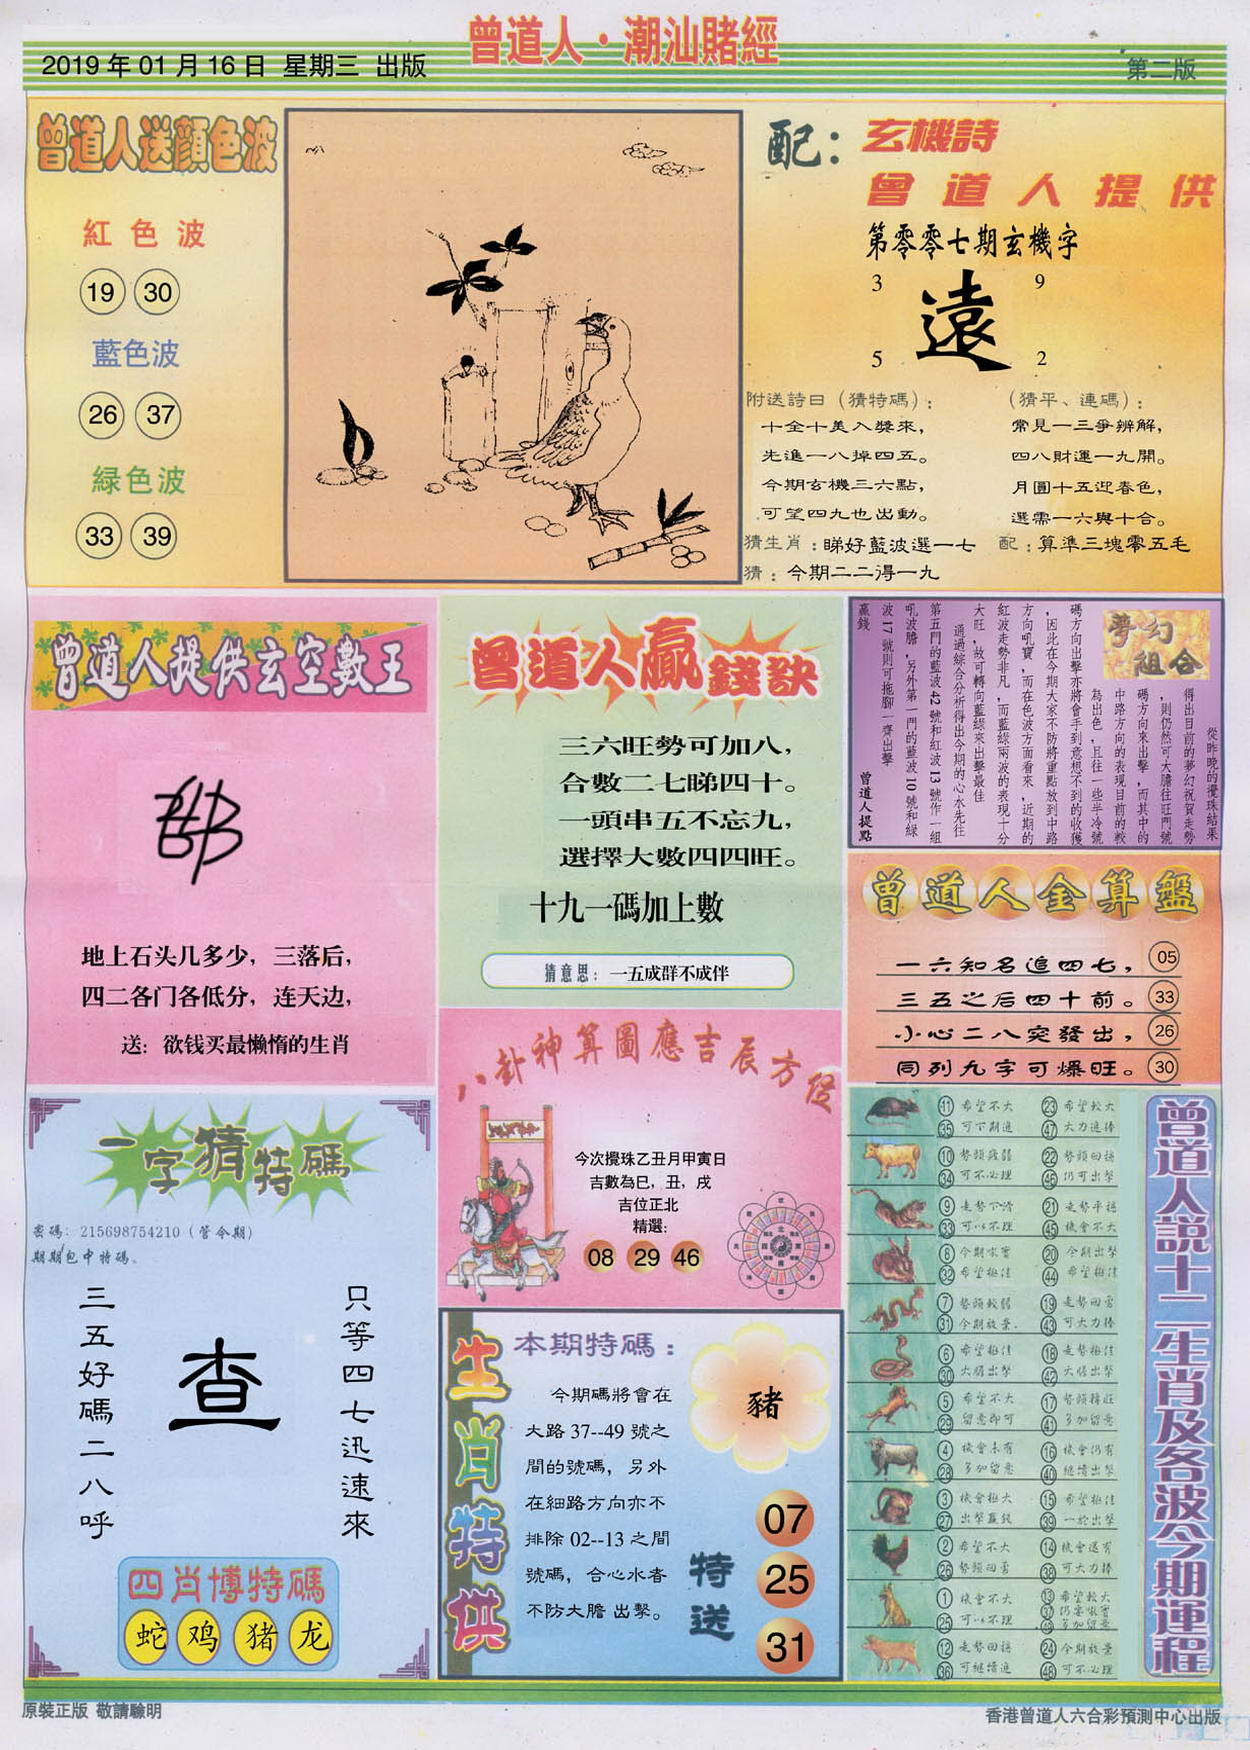 曾道人·潮汕賭經
2019年01月16日 星期三 出版
第二版
曾道人送顔色波
紅色波
19 30
藍色波
26 37
緑色波
33 39
配：玄機詩
曾道人提供
第零零七期玄機字
3 9
遠
5 2
附送詩曰（猜特碼）：
十全十美入獎來，
先進一八掉四五。
今期玄機三六點，
可望四九也出動。
猜生肖：睇好藍波選一七
猜：今期二二得一九
（猜平、連碼）：
常見一三爭辨解，
四八財運一九開。
月圓十五迎春色，
選需一六與十合。
配：算準三塊零五毛
曾道人提供玄空數王
地上石头几多少，三落后，
四二各门各低分，连天边，
送：欲钱买最懒惰的生肖
曾道人贏錢訣
三六旺勢可加八，
合數二七睇四十。
一頭串五不忘九，
選擇大數四四旺。
十九一碼加上數
猜意思：一五成群不成伴
夢幻組合
從昨晚的攪珠結果
得出目前的夢幻祝賀走勢
，則仍然可大膽往旺門號
碼方向來出擊，而其中的
中路方向的表現目前的較
為出色，且往一些半冷號
碼方向出擊亦將會手到意想不到的收獲
，因此在今期大家不防將重點放到中路
方向吼寶，而在色波方面看來，近期的
紅波走勢非凡，而藍綠兩波的表現十分
大旺，故可轉向藍綠來出擊最佳
通過綜合分析得出今期的心水先往
第五門的藍波42號和紅波13號作一組
吼波膽，另外第一門的藍波10號和綠
波17號則可拖腳一齊出擊
贏錢
曾道人提點
曾道人金算盤
一六知名追四七，05
三五之后四十前。33
小心二八突發出，26
同列九字可爆旺。30
八卦神算圖應吉辰方位
今次攪珠乙丑月甲寅日
吉數為巳，丑，戌
吉位正北
精選：
08 29 46
一字猜特碼
密碼：215698754210（管令期）
期期包中特碼。
只等四七迅速來
查
三五好碼二八呼
四肖博特碼
蛇 鸡 猪 龙
生肖特供
本期特碼：
今期碼將會在
大路37--49號之
間的號碼，另外
在細路方向亦不
排除02--13之間
號碼，合心水者
不防大膽出擊。
豬
特送
07
25
31
曾道人説十二生肖及各波今期運程
11 希望不大 23 希望較大
35 可下期進 47 大力進棒
10 勢頭疲弱 22 勢頭回穩
34 可不必理 46 仍可出擊
9 走勢不清 21 走勢平穩
33 可以不理 45 機會不大
8 今期吼寶 20 今期出擊
32 希望極佳 44 希望極佳
7 勢頭較弱 19 走勢回零
31 今期放棄. 43 可大力棒
6 希望極佳 18 走勢極佳
30 大膽出擊 42 大膽出擊
5 希望不大 17 勢頭轉旺
29 留意即可 41 多加留意
4 機會未有 16 機會仍有
28 多加留意 40 繼續出擊
3 機會極大 15 希望極佳
27 出擊贏錢 39 一於出擊
2 希望不大 14 機會還有
26 勢頭回零 38 可大力棒
1 機會不大 13 希望較大
25 可以不理 37 仍需吼寶
49 多加留意
12 走勢回穩 24 今期放棄
36 可繼續進 48 可不必理
原裝正版 敬請驗明
香港曾道人六合彩預測中心出版